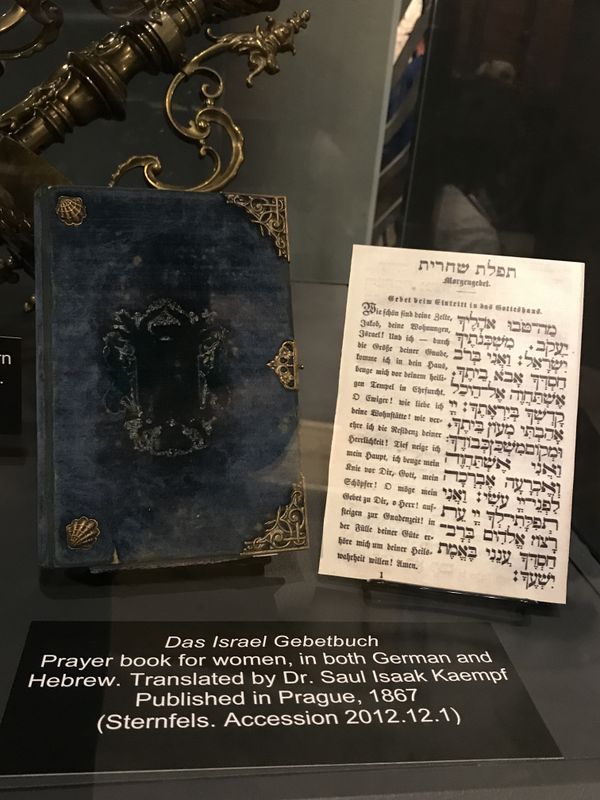 תפלת שחרית
Morgengebet.
Gebet beim Eintritt in das Gotteshaus.
Wie schön sind deine Zelte,
Jakob, deine Wohnungen,
Israel! Und ich — durch
die Größe deiner Gnade,
komme ich in dein Haus,
beuge mich vor deinem heili-
gen Tempel in Ehrfurcht.
O Ewiger! wie liebe ich
deine Wohnstätte! wie ver-
ehre ich die Residenz deiner
Herrlichkeit! Tief neige ich
mein Haupt, ich beuge mein
Knie vor Dir, Gott, mein
Schöpfer! O möge mein
Gebet zu Dir, o Herr! auf-
steigen zur Gnadenzeit! in
der Fülle deiner Güte er-
höre mich um deiner Heils-
wahrheit willen! Amen.
מַה־טֹּבוּ אֹהָלֶיךָ
יַעֲקֹב. מִשְׁכְּנֹתֶיךָ
יִשְׂרָאֵל: וַאֲנִי בְּרֹב
חַסְדְּךָ אָבֹא בֵיתֶךָ
אֶשְׁתַּחֲוֶה אֶל הֵיכַל
קָדְשְׁךָ בְּיִרְאָתֶךָ: יְיָ
אָהַבְתִּי מְעוֹן בֵּיתֶךָ
וּמְקוֹם מִשְׁכַּן כְּבוֹדֶךָ:
וַאֲנִי אֶשְׁתַּחֲוֶה
וְאֶכְרָעָה אֶבְרְכָה
לִפְנֵי יְיָ עֹשִׂי: וַאֲנִי
תְפִלָּתִי לְךָ יְיָ עֵת
רָצוֹן אֱלֹהִים בְּרָב
חַסְדֶּךָ עֲנֵנִי בֶּאֱמֶת
יִשְׁעֶךָ:
1
Das Israel Gebetbuch
Prayer book for women, in both German and
Hebrew. Translated by Dr. Saul Isaak Kaempf
Published in Prague, 1867
(Sternfels. Accession 2012.12.1)